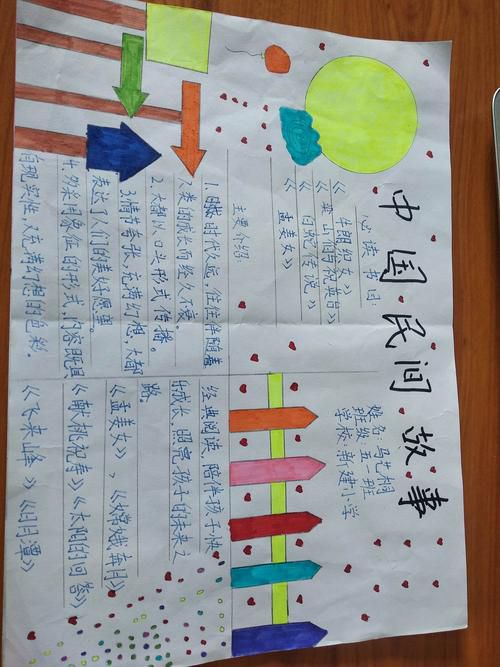 中国民间故事
姓名:马艺桐
班级 五 班
学校:新建小学
必读书目:
《牛朗织女》
《梁山伯与祝英台》
《白蛇传说》
《孟姜女》
主要介绍:
1. 时代久远,往往伴随着
人类的成长而经久不衰。
2、大都以口头形式传播。
3.情节夸张、充满幻想,大都
表达了人们的美好愿望。
4.多采用象征的形式,内容既具
有现实性,又充满幻想的色彩。
经典阅读,陪伴孩子快
乐成长,照亮孩子的未来之
路。
《孟姜女》,《嫦娥奔月》
《献桃祝寿》《太阳的回答》
《飞来山峰》《日月潭》